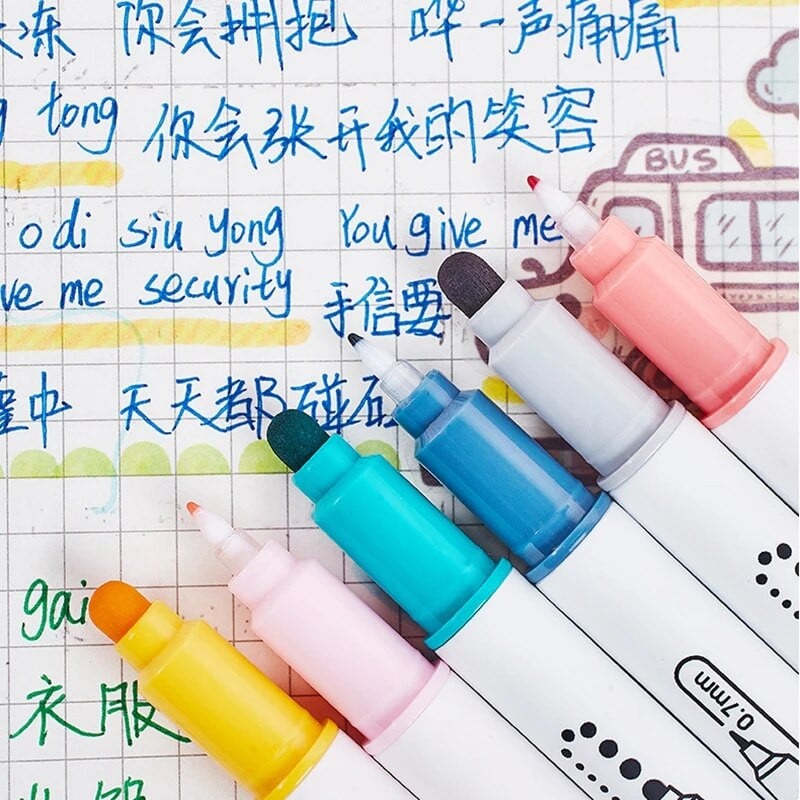 冻 你会拥抱 哗一声痛痛
tong 你会张开我的笑容
BUS
o di siu yong You give me
ve me security 手信要
中 天天都碰
gai
衣服
0.7mm